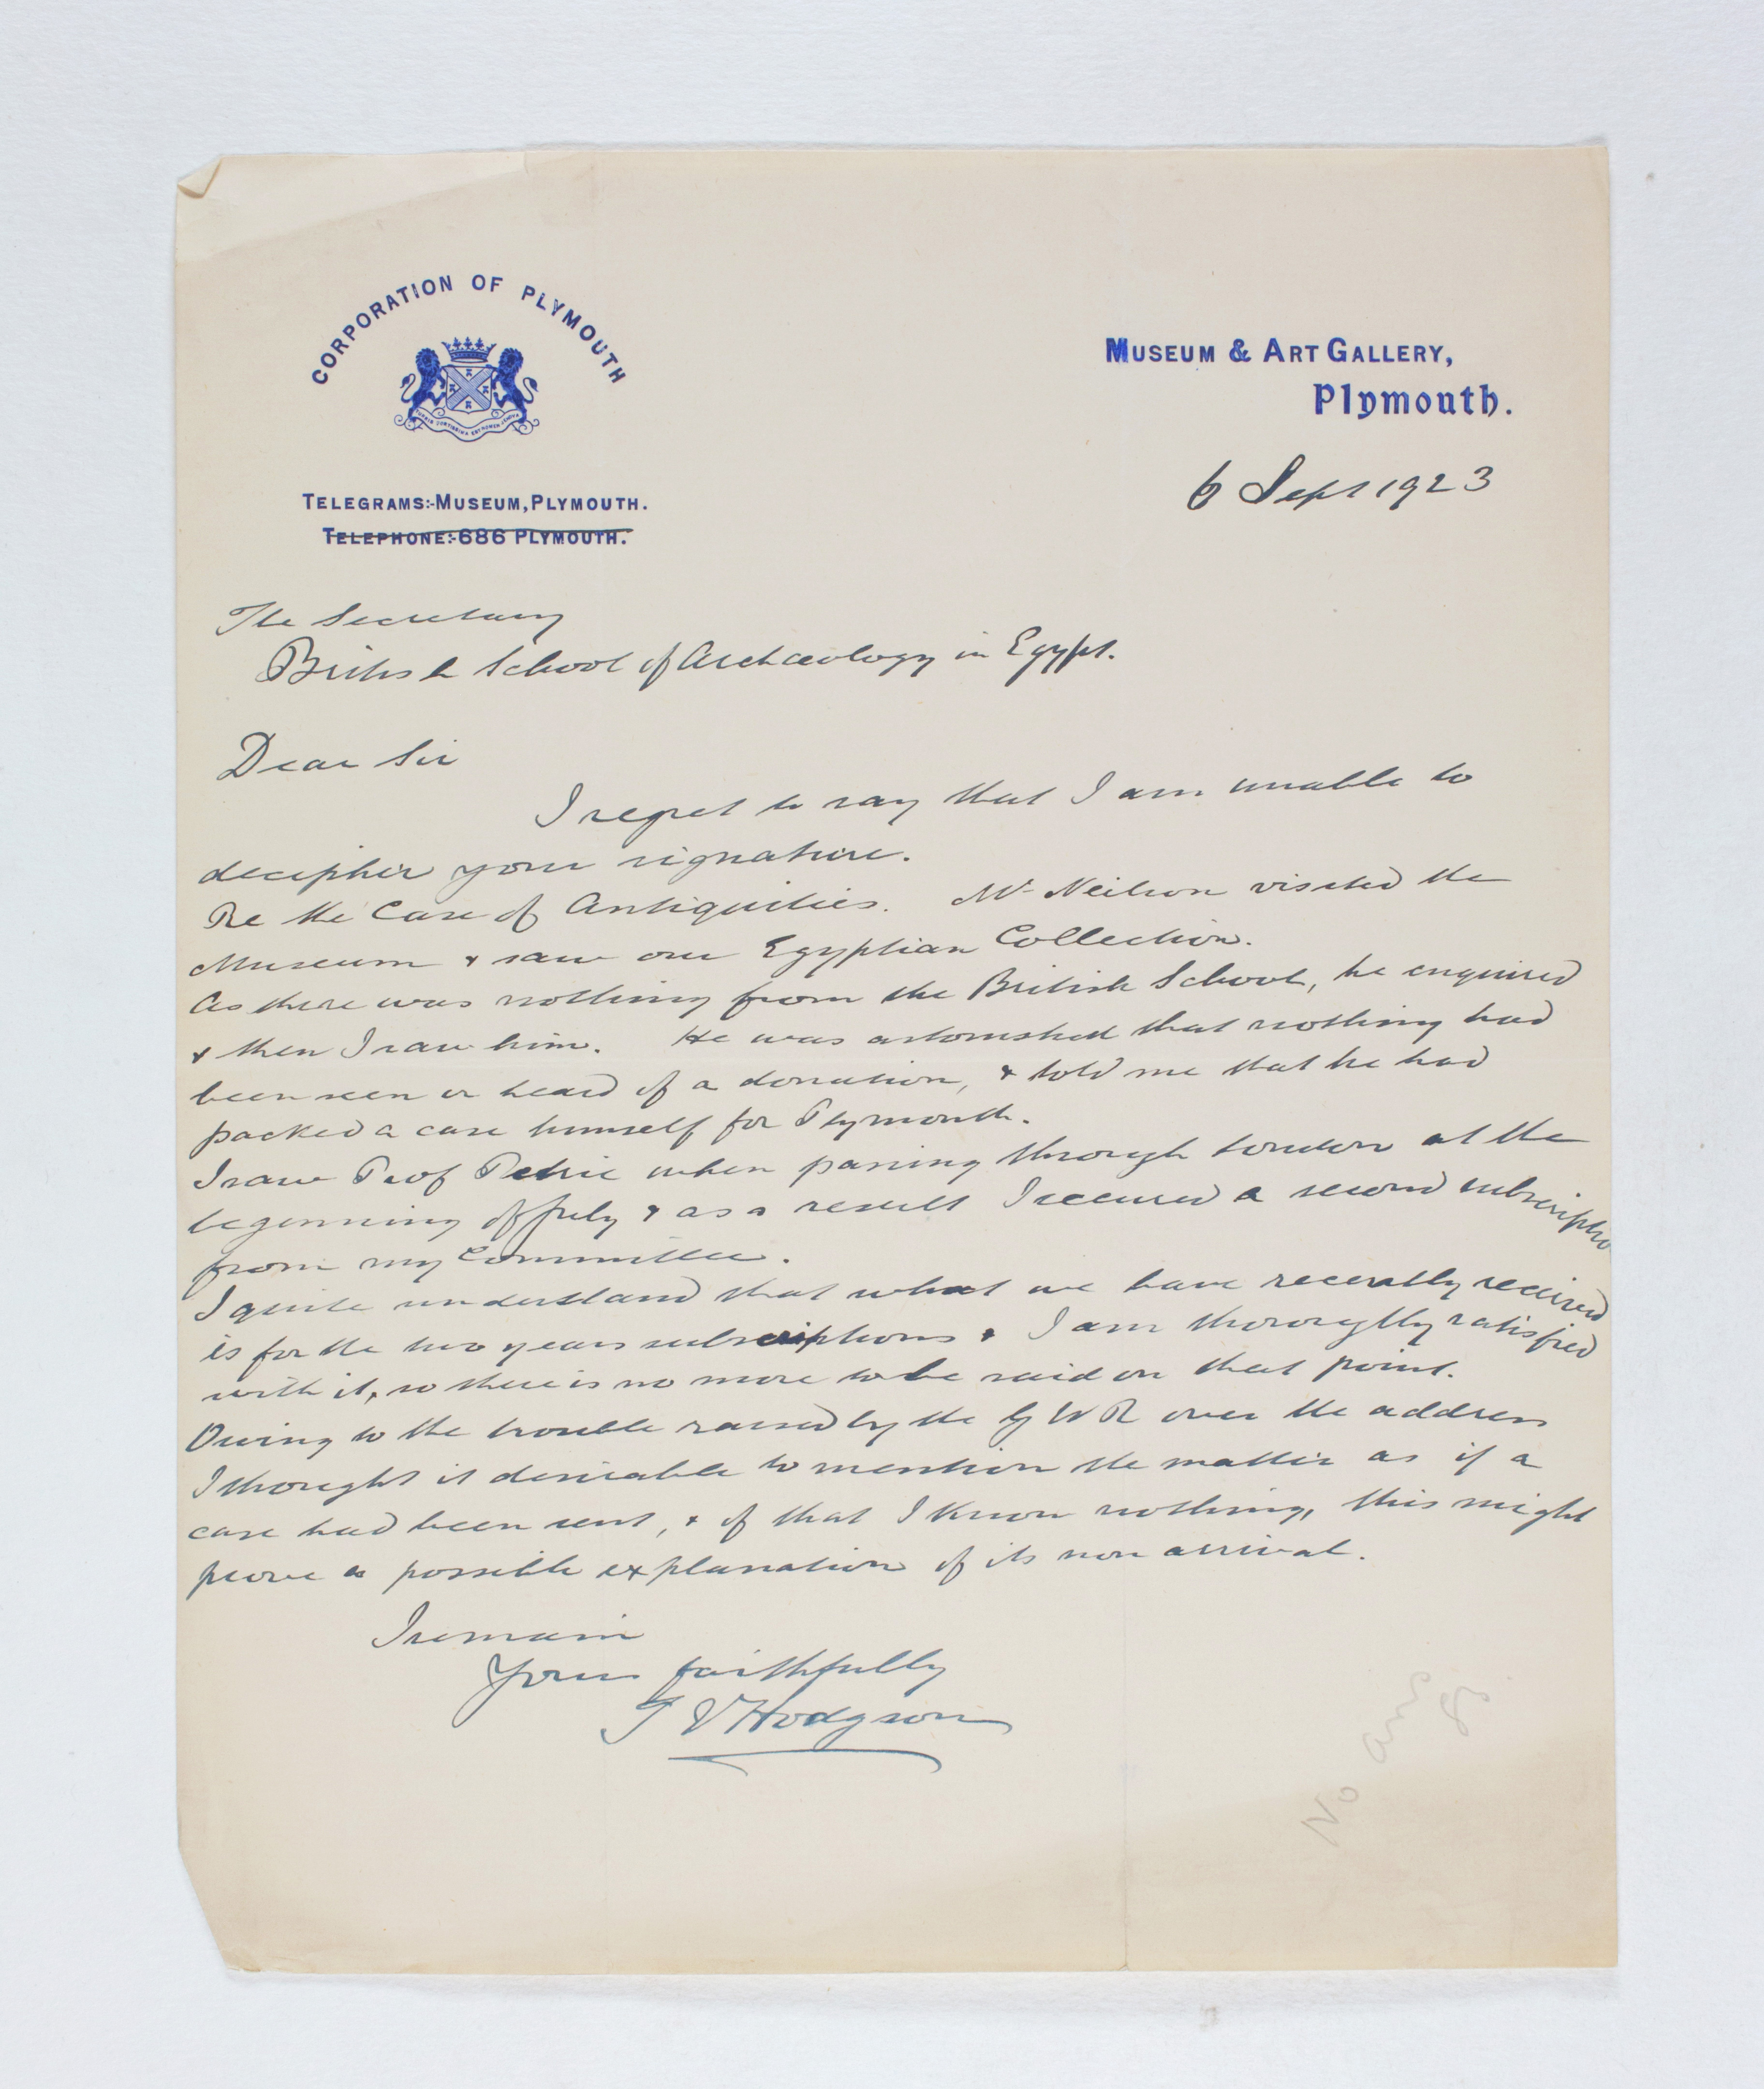 CORPORATION OF PLYMOUTH
TURRIS FORTISSIMA EST NOMEN JEHOVA
MUSEUM & ART GALLERY,
Plymouth.
6 Sept 1923
TELEGRAMS:-MUSEUM, PLYMOUTH.
TELEPHONE:-686 PLYMOUTH.
The Secretary
British School of Archaeology in Egypt.
Dear Sir
I regret to say that I am unable to
decipher your signature.
Re the Case of Antiquities. Mr Neilson visited the
Museum & saw our Egyptian Collection.
As there was nothing from the British School, he enquired
& then I saw him. He was astonished that nothing had
been seen or heard of a donation, & told me that he had
packed a case himself for Plymouth.
I saw Prof Petrie when passing through London at the
beginning of July & as a result I secured a second subscriptio
from my Committee.
I quite understand that what we have recently received
is for the two years subscriptions & I am thoroughly satisfied
with it, so there is no more to be said on that point.
Owing to the trouble raised by the G W R over the address
I thought it desirable to mention the matter as if a
case had been sent, & of that I know nothing, this might
prove a possible explanation of its non arrival.
I remain
Yours faithfully
T V Hodgson
No ans